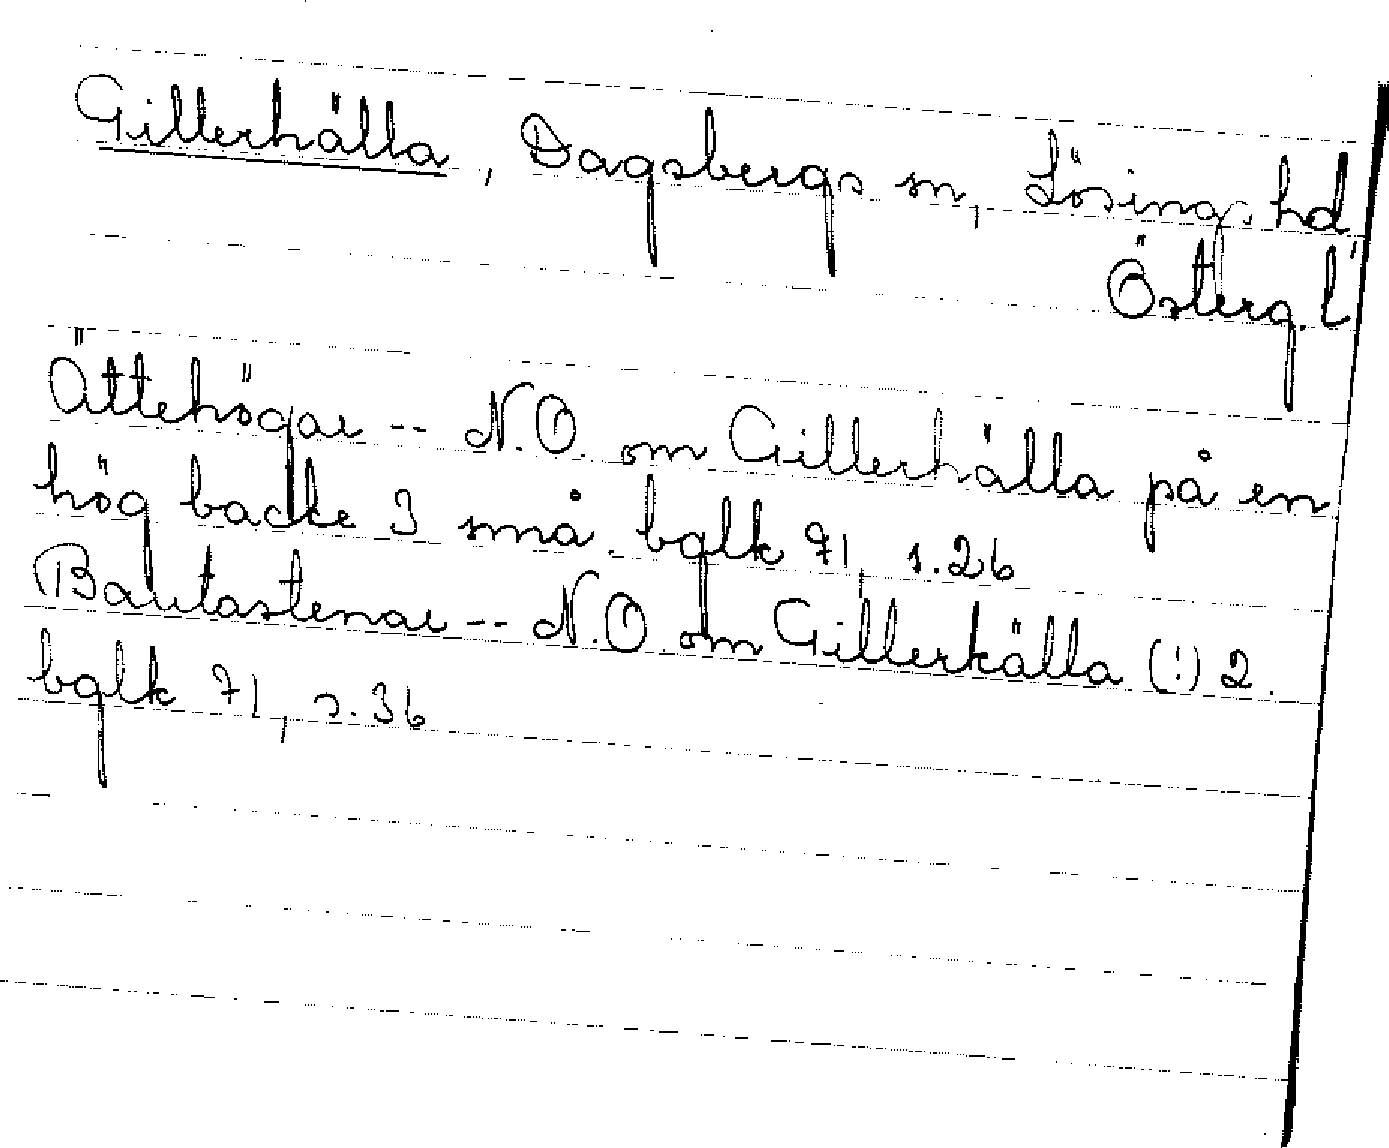 Gillerhälla, Dagsbergs sn, Lösings hd
Österg. l
Ättehögar -- N.O. om Gillerhälla på en
hög backe 3 små. bglk 71, s. 26
Bautastenar -- N.O om Gillerkälla (!) 2.
bglk 71, s. 36